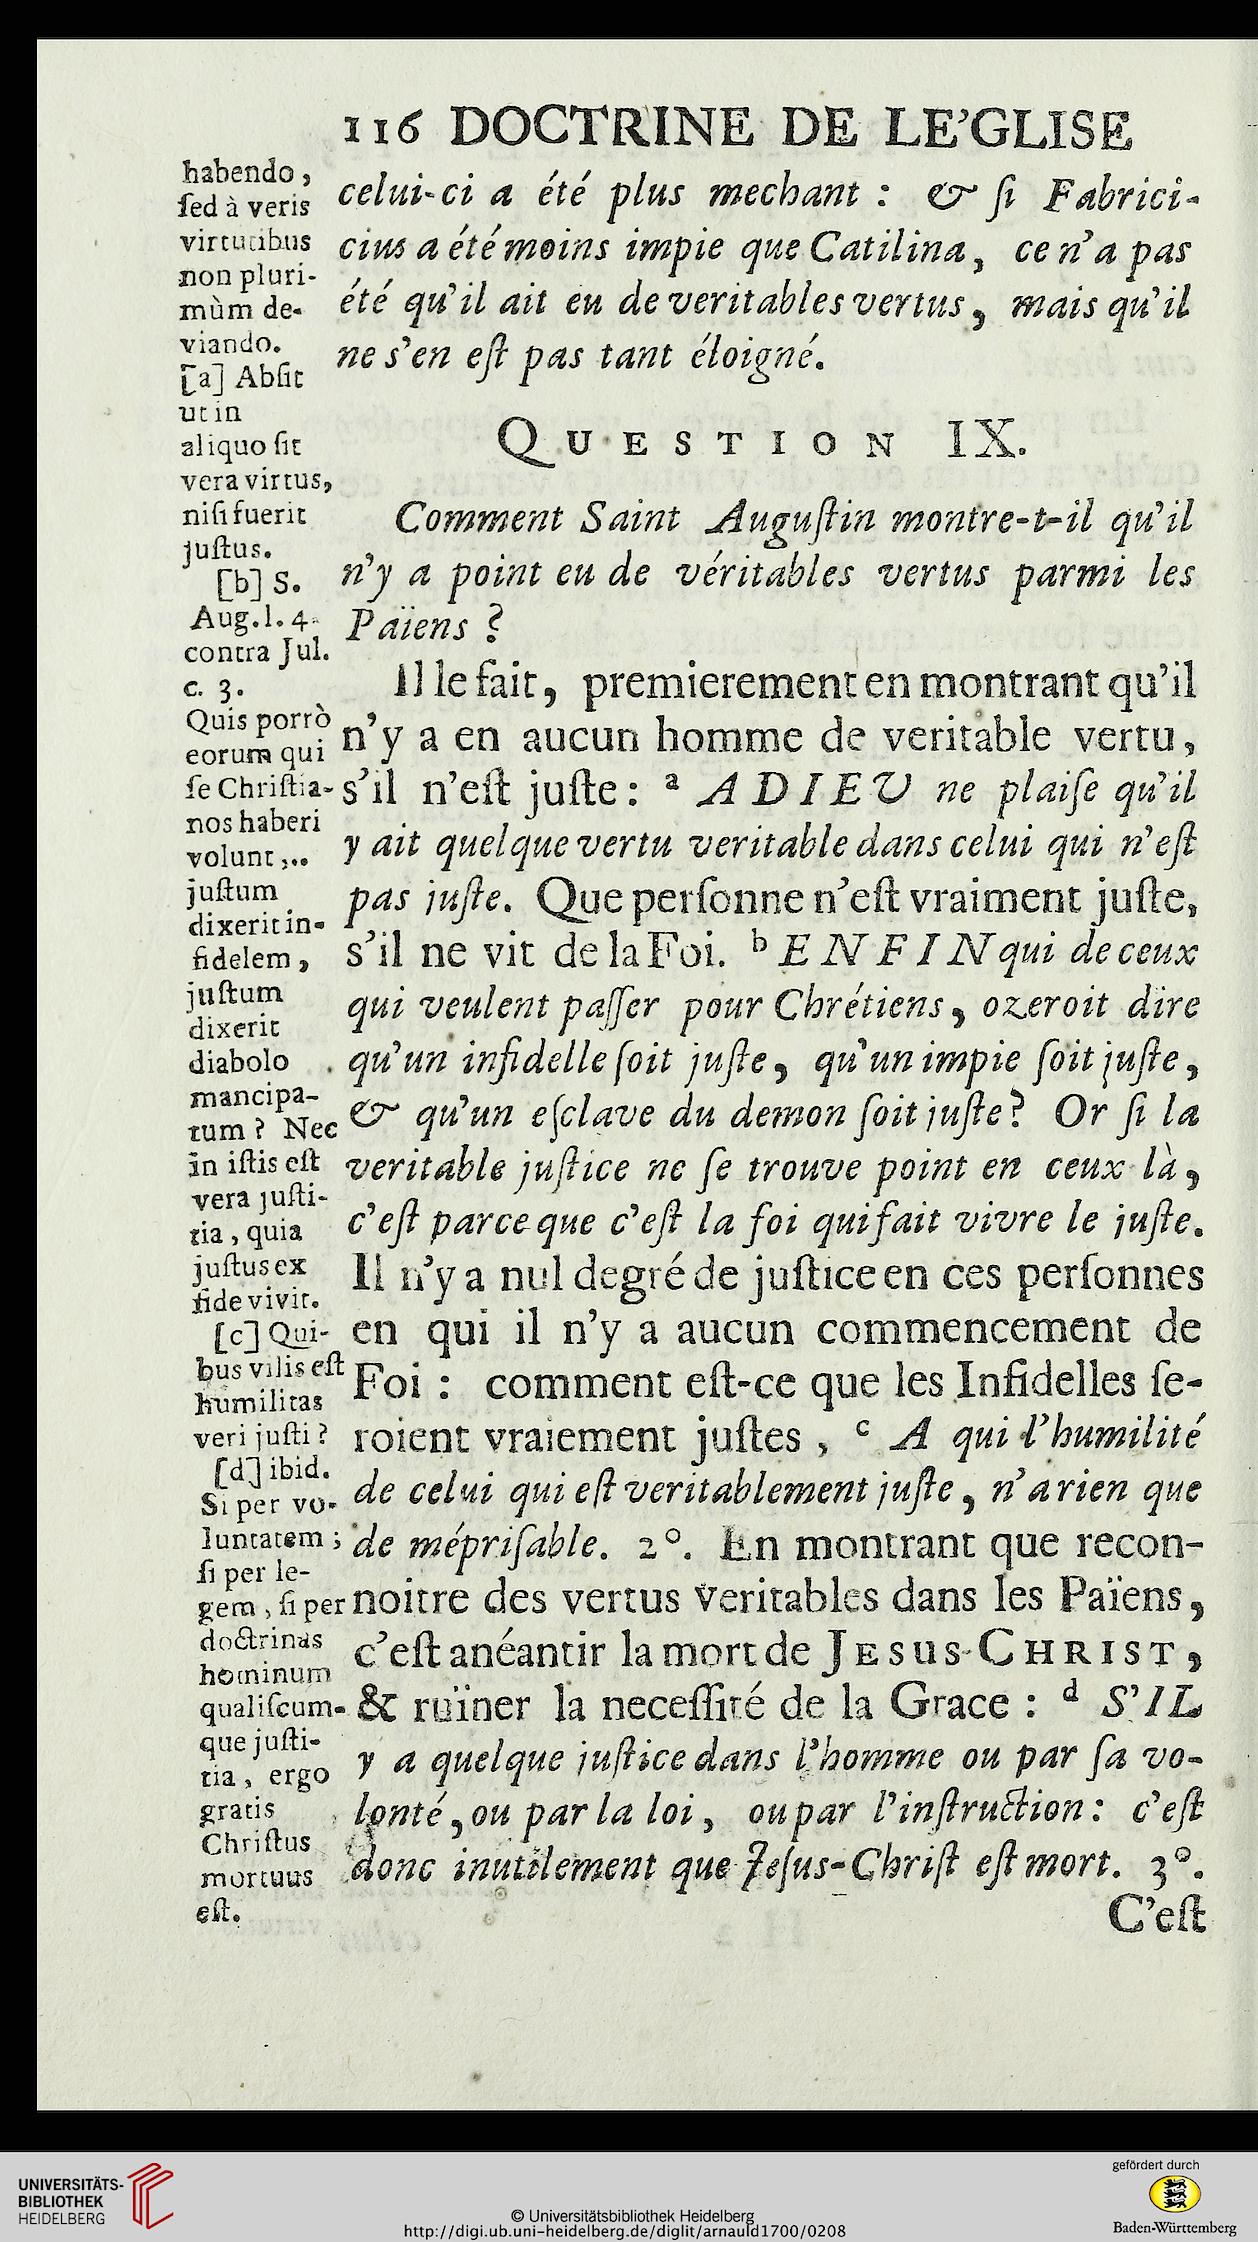 116 DOCTRINE DE LE'GLISE
habendo,
ſed à veris
virtutibus
non pluri-
mùm de-
viando.
[a] Abſit
ut in
aliquo ſit
vera virtus,
niſi fuerit
juſtus.
[b] S.
Aug. l. 4.
contra Jul.
c. 3.
Quis porrò
eorum qui
ſe Chriſtia-
nos haberi
volunt,..
juſtum
dixerit in-
fidelem,
juſtum
dixerit
diabolo
mancipa-
tum? Nec
in iſtis eſt
vera juſti-
tia, quia
juſtus ex
fide vivit.
[c] Qui-
bus vilis eſt
humilitas
veri juſti?
[d] ibid.
Si per vo-
luntatem;
ſi per le-
gem, ſi per
doctrinas
hominum
qualiſcum-
que juſti-
tia, ergo
gratis
Chriſtus
mortuus
eſt.
celui-ci a été plus mechant : & ſi Fabrici-
cius a été moins impie que Catilina, ce n'a pas
été qu'il ait eu de veritables vertus, mais qu'il
ne s'en eſt pas tant éloigné.
QUESTION IX.
Comment Saint Auguſtin montre-t-il qu'il
n'y a point eu de véritables vertus parmi les
Païens ?
Il le fait, premierement en montrant qu'il
n'y a en aucun homme de veritable vertu,
s'il n'eſt juſte: a A DIEU ne plaiſe qu'il
y ait quelque vertu veritable dans celui qui n'eſt
pas juſte. Que perſonne n'eſt vraiment juſte,
s'il ne vit de la Foi. b ENFIN qui de ceux
qui veulent paſſer pour Chrétiens, ozeroit dire
qu'un infidelle ſoit juſte, qu'un impie ſoit juſte,
& qu'un eſclave du demon ſoit juſte? Or ſi la
veritable juſtice ne ſe trouve point en ceux là,
c'eſt parce que c'eſt la foi qui fait vivre le juſte.
Il n'y a nul degré de juſtice en ces perſonnes
en qui il n'y a aucun commencement de
Foi : comment eſt-ce que les Infidelles ſe-
roient vraiement juſtes, c A qui l'humilité
de celui qui eſt veritablement juſte, n'a rien que
de mépriſable. 2°. En montrant que recon-
noitre des vertus veritables dans les Païens,
c'eſt anéantir la mort de JESUS-CHRIST,
& ruïner la neceſſité de la Grace : d S'IL
y a quelque juſtice dans l'homme ou par ſa vo-
lonté, ou par la loi, ou par l'inſtruction: c'eſt
donc inutilement que Jeſus-Chriſt eſt mort. 3°.
C'eſt
UNIVERSITÄTS-
BIBLIOTHEK
HEIDELBERG
© Universitätsbibliothek Heidelberg
http://digi.ub.uni-heidelberg.de/diglit/arnauld1700/0208
gefördert durch
Baden-Württemberg